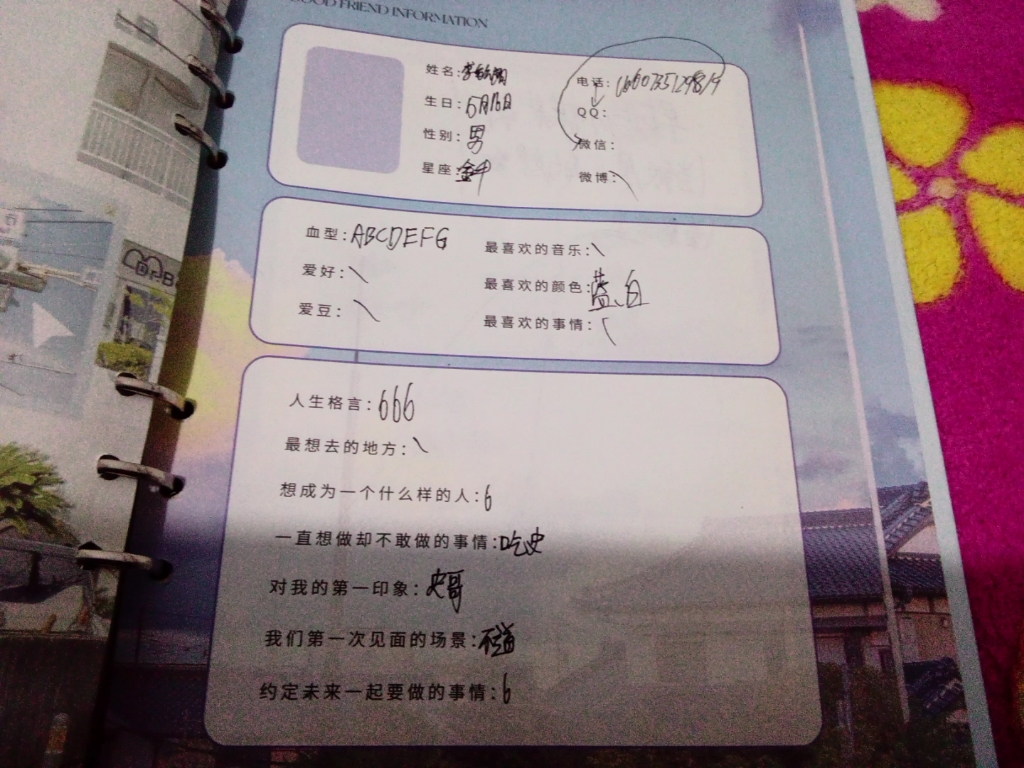 GOOD FRIEND INFORMATION
姓名:李
生日:5月16日
性别:男
星座:金牛
电话:
QQ:
微信:
微博:\
血型:ABCDEFG
爱好:\
爱豆:\
最喜欢的音乐:\
最喜欢的颜色:蓝、白
最喜欢的事情:\
人生格言:666
最想去的地方:\
想成为一个什么样的人:6
一直想做却不敢做的事情:吃史
对我的第一印象:史哥
我们第一次见面的场景:
约定未来一起要做的事情:6
Dr.B